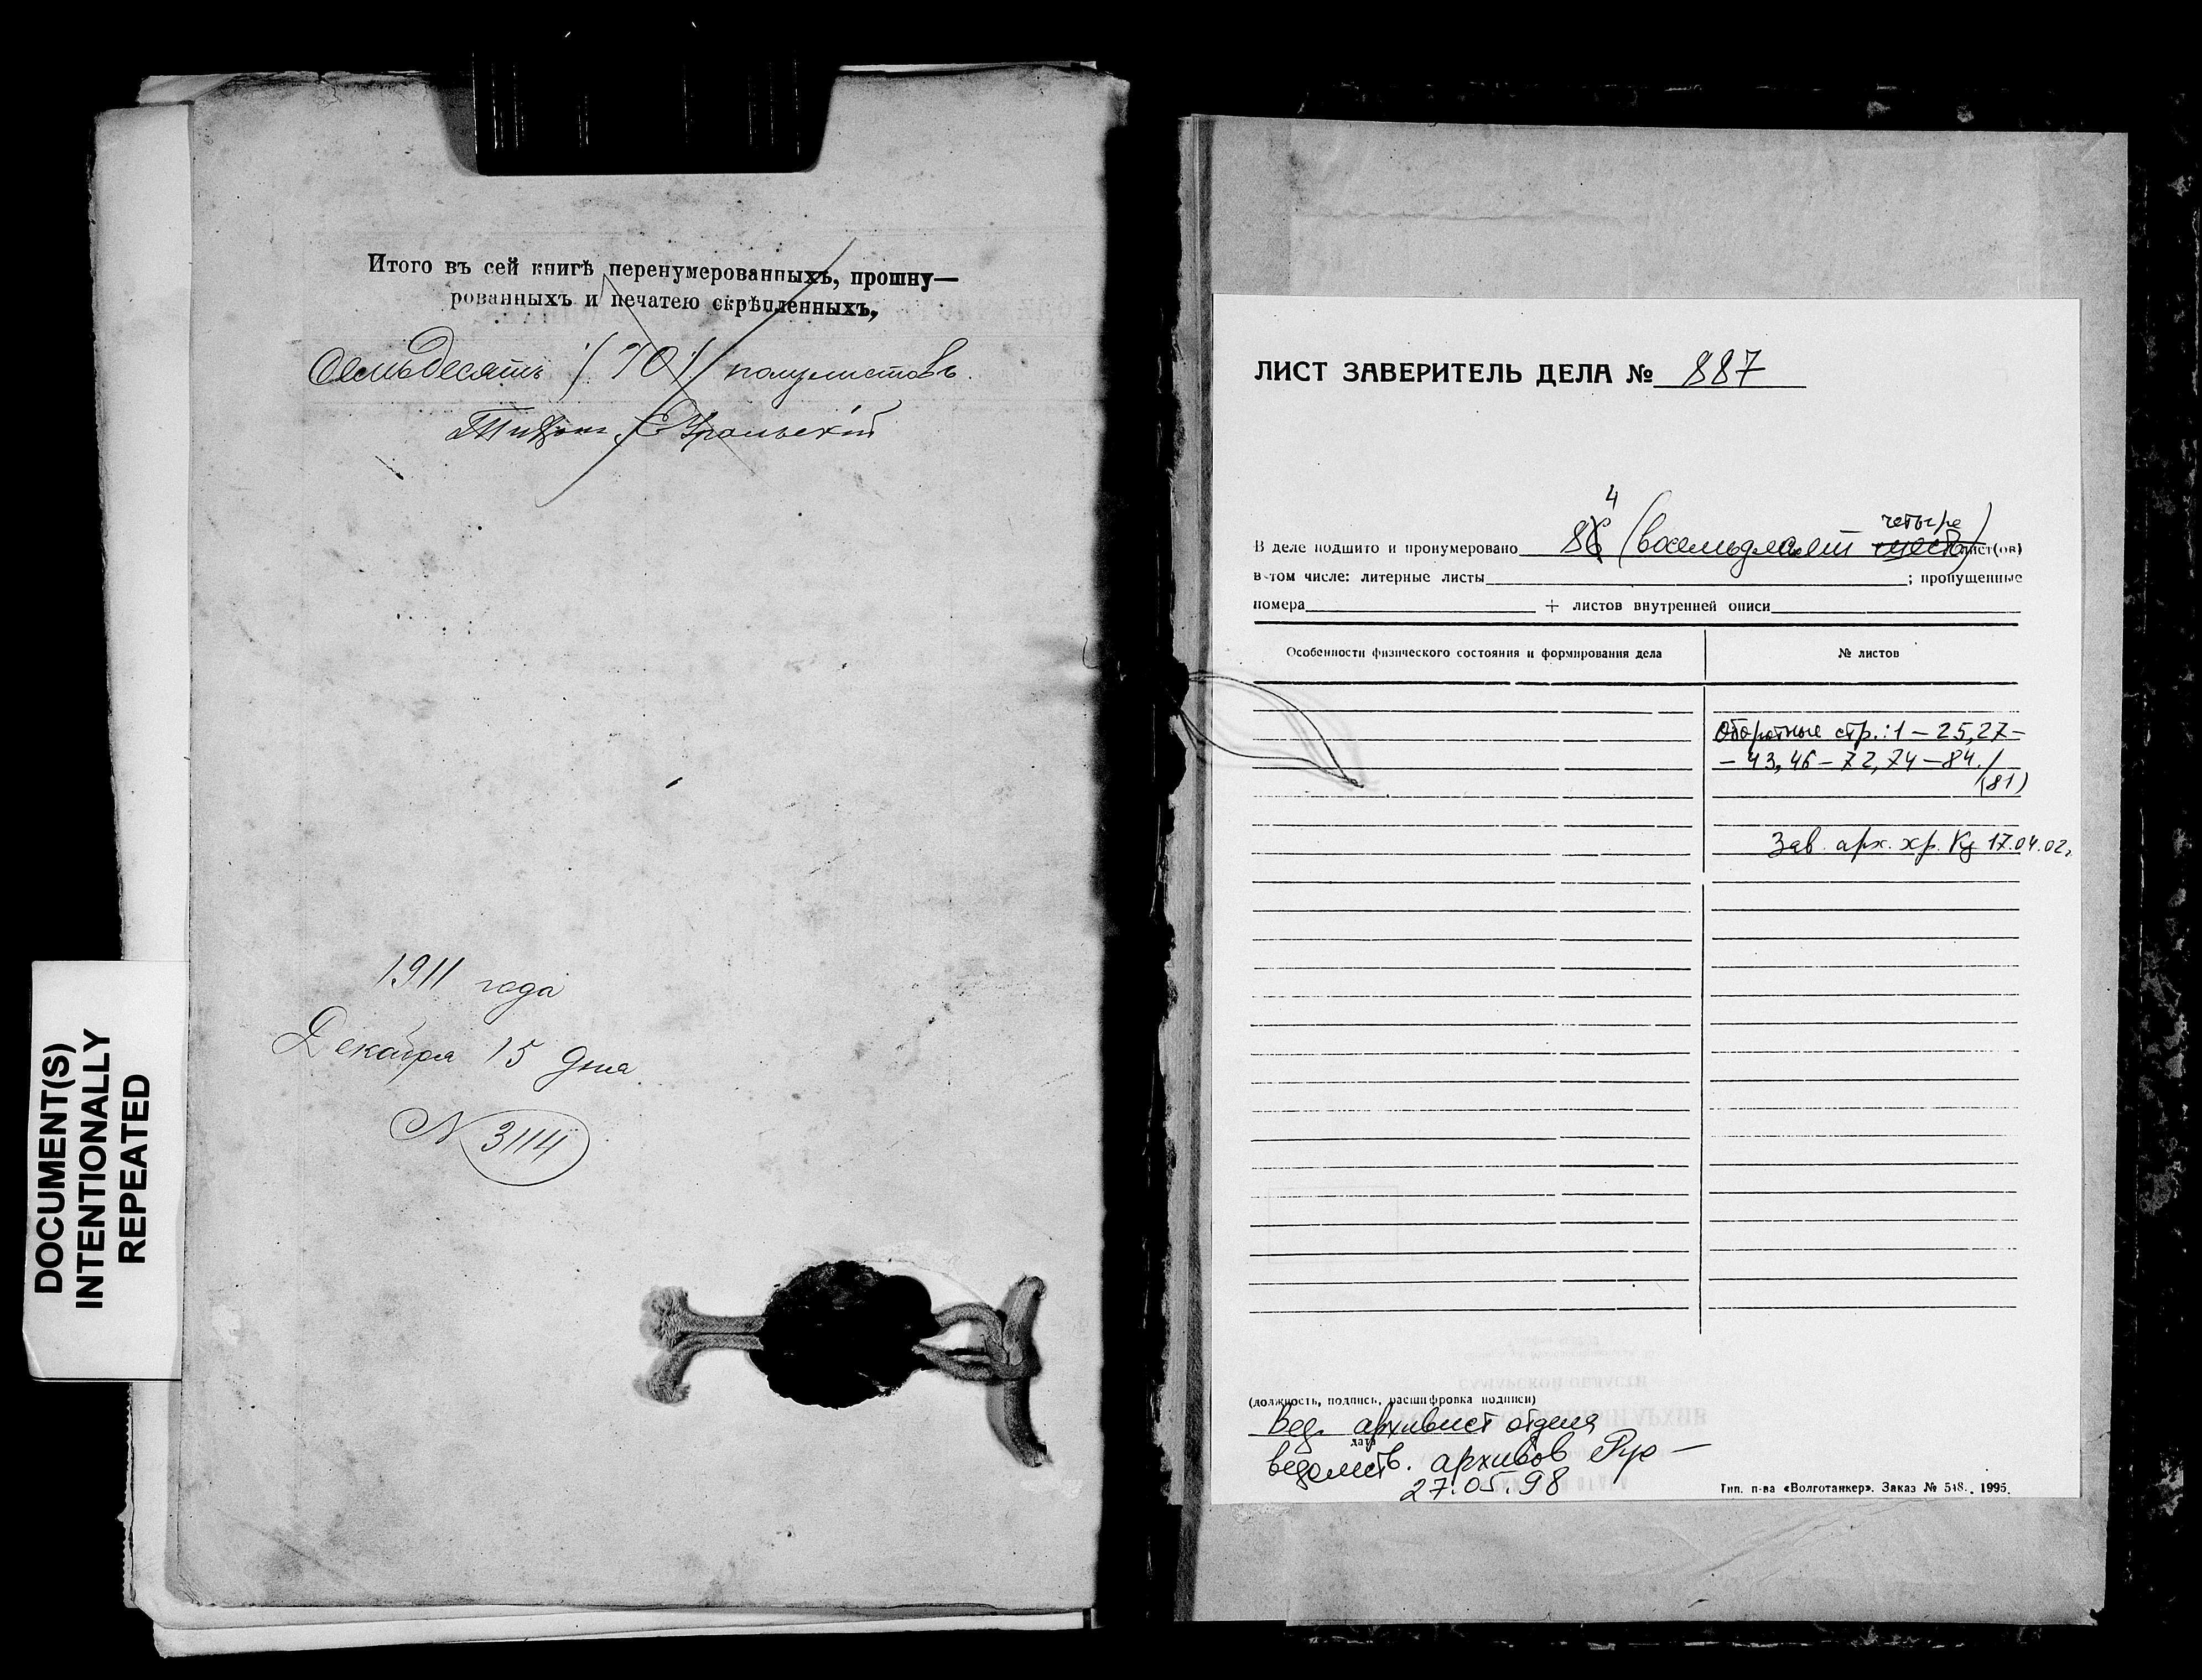 Итого въ сей книгѣ перенумерованныхъ, прошну—
рованныхъ и печатею скрѣпленныхъ,
Семьдесятъ /70/ полулистовъ.
1911 года
Декабря 15 дня
N 3114
DOCUMENT(S)
INTENTIONALLY
REPEATED
ЛИСТ ЗАВЕРИТЕЛЬ ДЕЛА № 887
4
четыре
В деле подшито и пронумеровано 86 (восемьдесят шесть) лист(ов)
в том числе: литерные листы ; пропущенные
номера + листов внутренней описи
Особенности физического состояния и формирования дела № листов
Оборотные стр.: 1 – 25, 27 –
– 43, 46 – 72, 74 – 84. /
(81)
Зав. арх. хр. 17.04.02г
(должность, подпись, расшифровка подписи)
Вед. архивист отдела
дата
ведомств. архивов
27.05.98
Тип. п-ва «Волготанкер». Заказ № 548. 1995.